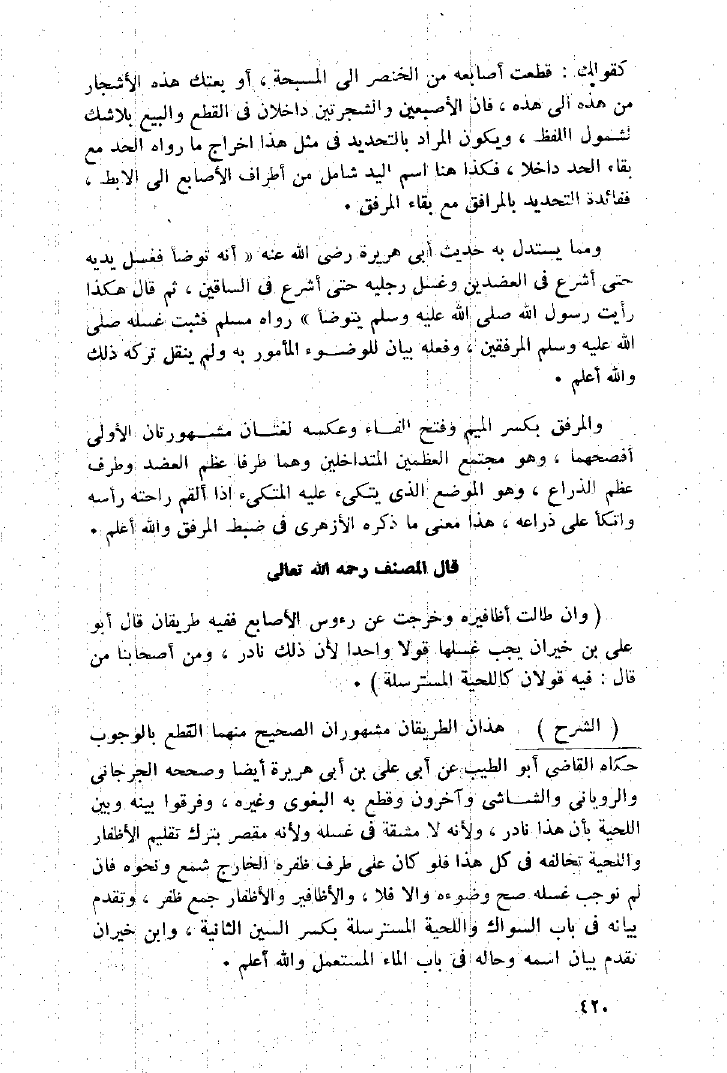 كقولك : قطعت أصابعه من الخنصر الى المسبحة ، أو بعتك هذه الأشجار
من هذه الى هذه ، فان الأصبعين والشجرتين داخلان فى القطع والبيع بلاشك
لشمول اللفظ ، ويكون المراد بالتحديد فى مثل هذا اخراج ما رواه الحد مع
بقاء الحد داخلا ، فكذا هنا اسم اليد شامل من أطراف الأصابع الى الابط ،
ففائدة التحديد بالمرافق مع بقاء المرفق •
ومما يستدل به حديث أبى هريرة رضى الله عنه « أنه توضأ فغسل يديه
حتى أشرع فى العضدين وغسل رجليه حتى أشرع فى الساقين ، ثم قال هكذا
رأيت رسول الله صلى الله عليه وسلم يتوضأ » رواه مسلم فثبت غسله صلى
الله عليه وسلم المرفقين ، وفعله بيان للوضوء المأمور به ولم ينقل تركه ذلك
والله أعلم •
والمرفق بكسر الميم وفتح الفاء وعكسه لغتان مشهورتان الأولى
أفصحهما ، وهو مجتمع العظمين المتداخلين وهما طرفا عظم العضد وطرف
عظم الذراع ، وهو الموضع الذى يتكىء عليه المتكىء اذا ألقم راحته رأسه
واتكأ على ذراعه ، هذا معنى ما ذكره الأزهرى فى ضبط المرفق والله أعلم •
قال المصنف رحمه الله تعالى
( وان طالت أظافيره وخرجت عن رءوس الأصابع ففيه طريقان قال أبو
على بن خيران يجب غسلها قولا واحدا لأن ذلك نادر ، ومن أصحابنا من
قال : فيه قولان كاللحية المسترسلة ) •
( الشرح ) هذان الطريقان مشهوران الصحيح منهما القطع بالوجوب
حكاه القاضى أبو الطيب عن أبى على بن أبى هريرة أيضا وصححه الجرجانى
والرويانى والشاشى وآخرون وقطع به البغوى وغيره ، وفرقوا بينه وبين
اللحية بأن هذا نادر ، ولأنه لا مشقة فى غسله ولأنه مقصر بترك تقليم الأظفار
واللحية تخالفه فى كل هذا فلو كان على طرف ظفره الخارج شمع ونحوه فان
لم نوجب غسله صح وضوءه والا فلا ، والأظافير والأظفار جمع ظفر ، وتقدم
بيانه فى باب السواك واللحية المسترسلة بكسر السين الثانية ، وابن خيران
تقدم بيان اسمه وحاله فى باب الماء المستعمل والله أعلم •
٤٢٠